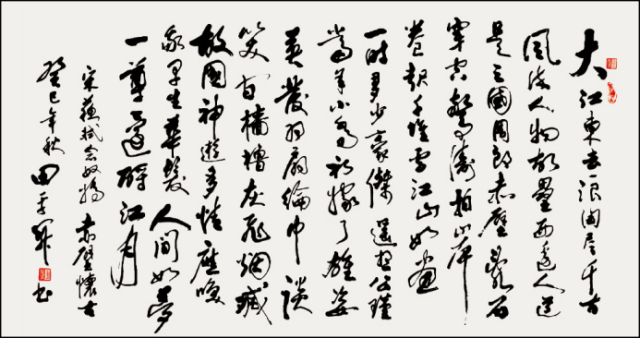 大江東去浪淘尽千古
風流人物故壘西邊人道
是三國周郎赤壁亂石
穿空驚濤拍岸
卷起千堆雪江山如畫
一時多少豪傑遥想公瑾
當年小喬初嫁了雄姿
英發羽扇綸巾談
笑間檣櫓灰飛烟滅
故國神遊多情應笑
我早生華髮人間如夢
一尊還酹江月
宋蘇軾念奴嬌 赤壁懷古
癸巳年秋 田 書